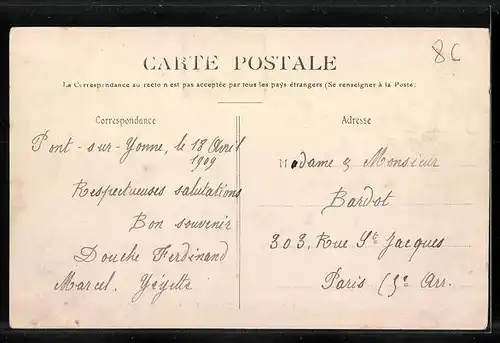 8C
CARTE POSTALE
La Correspondance au recto n'est pas acceptée par tous les pays étrangers (Se renseigner à la Poste)
Correspondance
Pont-sur-Yonne, le 18 Avril
1909
Respectueuses salutations
Bon souvenir
Douche Ferdinand
Marcel. Yéyette
Adresse
Madame & Monsieur
Bardot
303, Rue St Jacques
Paris (5e Arr.